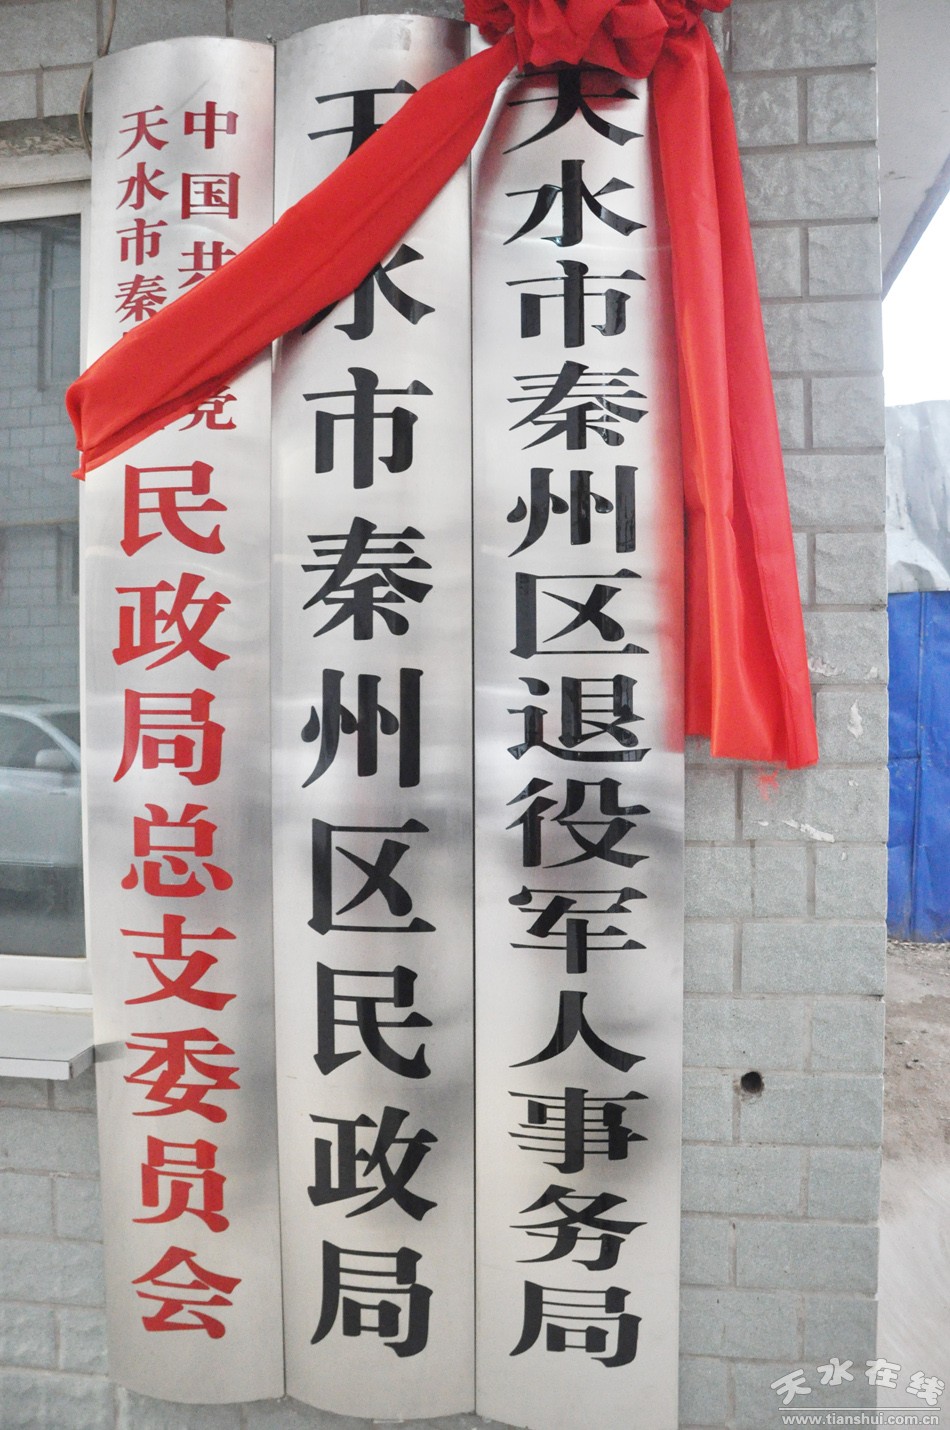 中国共
党
天水市秦
民政局总支委员会
天水市秦州区民政局
天水市秦州区退役军人事务局
天水在线
www.tianshui.com.cn